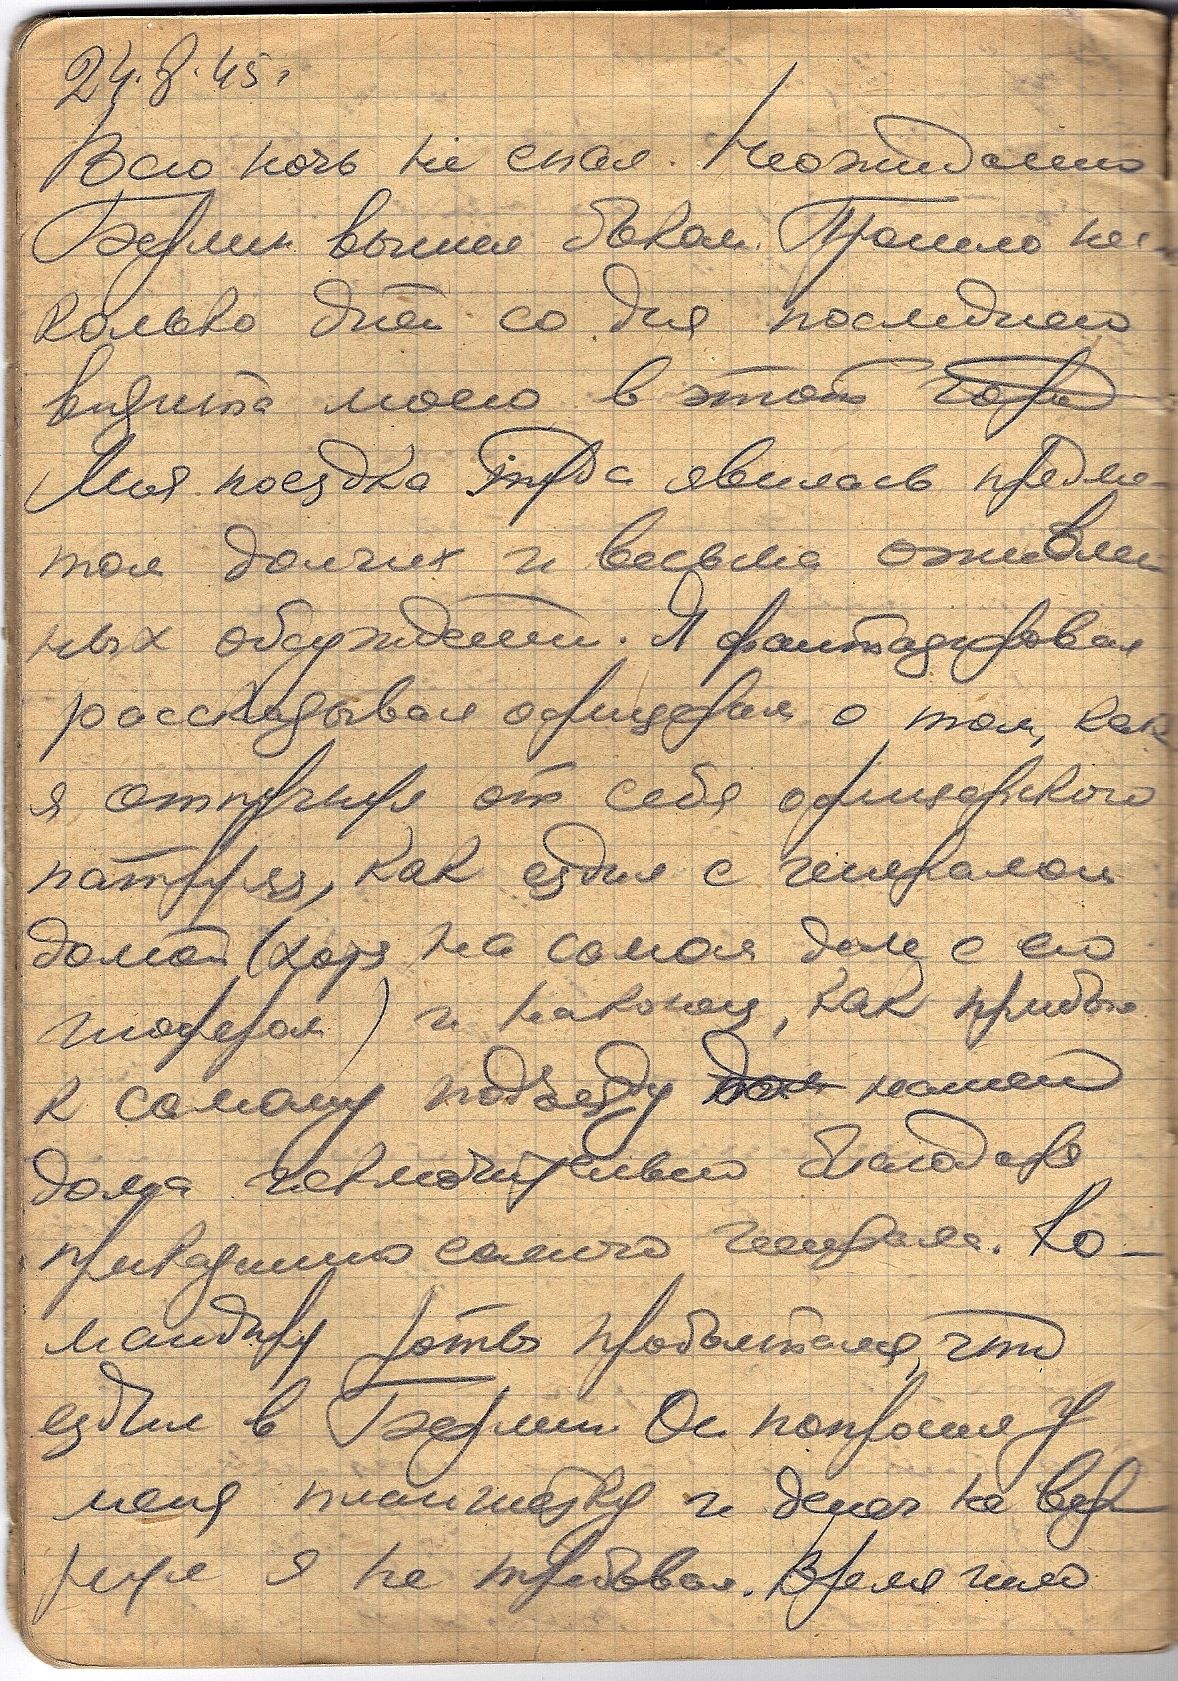 24.8.45г
Всю ночь не спал. Неожиданно
Берлин вышел боком. Прошло нес-
колько дней со дня последнего
визита моего в этот
Моя поездка туда явилась предме-
том долгих и весьма оживлен
ных обсуждений. Я фантазировал
рассказывал офицерам о том, как
я отпугнул от себя офицерского
патруля, как ездил с генералом
домой (хотя на самом деле с его
шофером) и наконец, как прибыл
к самому подъезду нашего
дома исключительно благодаря
приказанию самого генерала. Ко-
мандиру роты проболтался, что
ездил в Берлин. Он попросил у
меня планшетку и денег не вер
нул я не требовал. Время шло